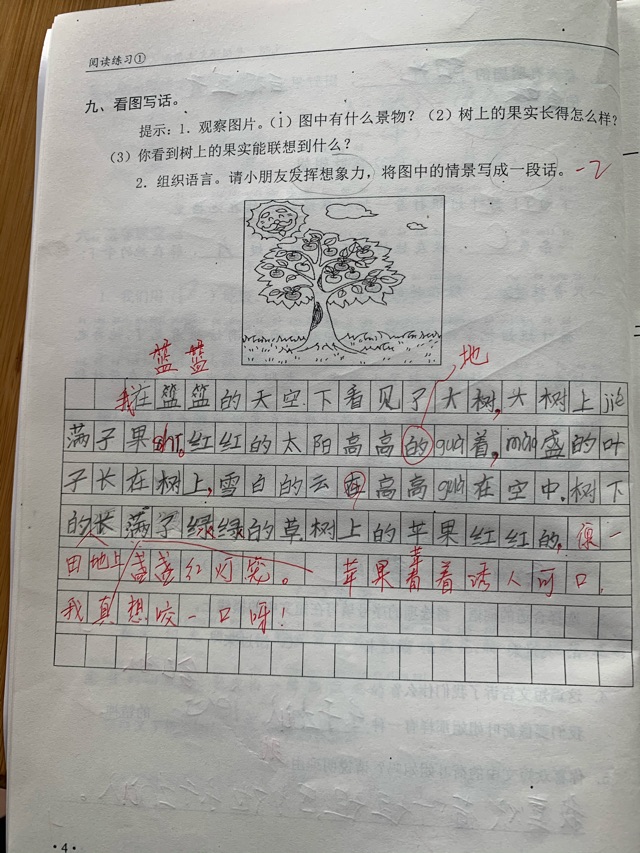 阅读练习①
九、看图写话。
提示：1．观察图片。（1）图中有什么景物？（2）树上的果实长得怎么样？
（3）你看到树上的果实能联想到什么？
2．组织语言。请小朋友发挥想象力，将图中的情景写成一段话。-2
蓝蓝 地
我在篮篮的天空下看见了大树，大树上jiē
满了果shí。红红的太阳高高的guà着，mào盛的叶
子长在树上，雪白的云在高高guà在空中，树下
的长满了绿绿的草，树上的苹果红红的，像一
盏盏红灯笼。 苹果看着诱人可口，
地上
我真想咬一口呀！
·4·